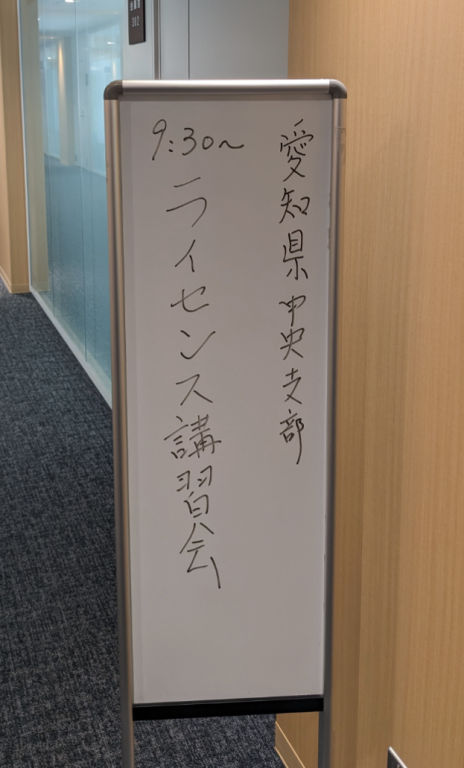 愛知県中央支部
9:30~
ライセンス講習会